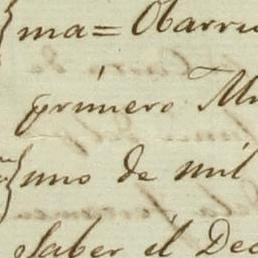 ma = Obarrio
primero
uno de mil
saber el Dec